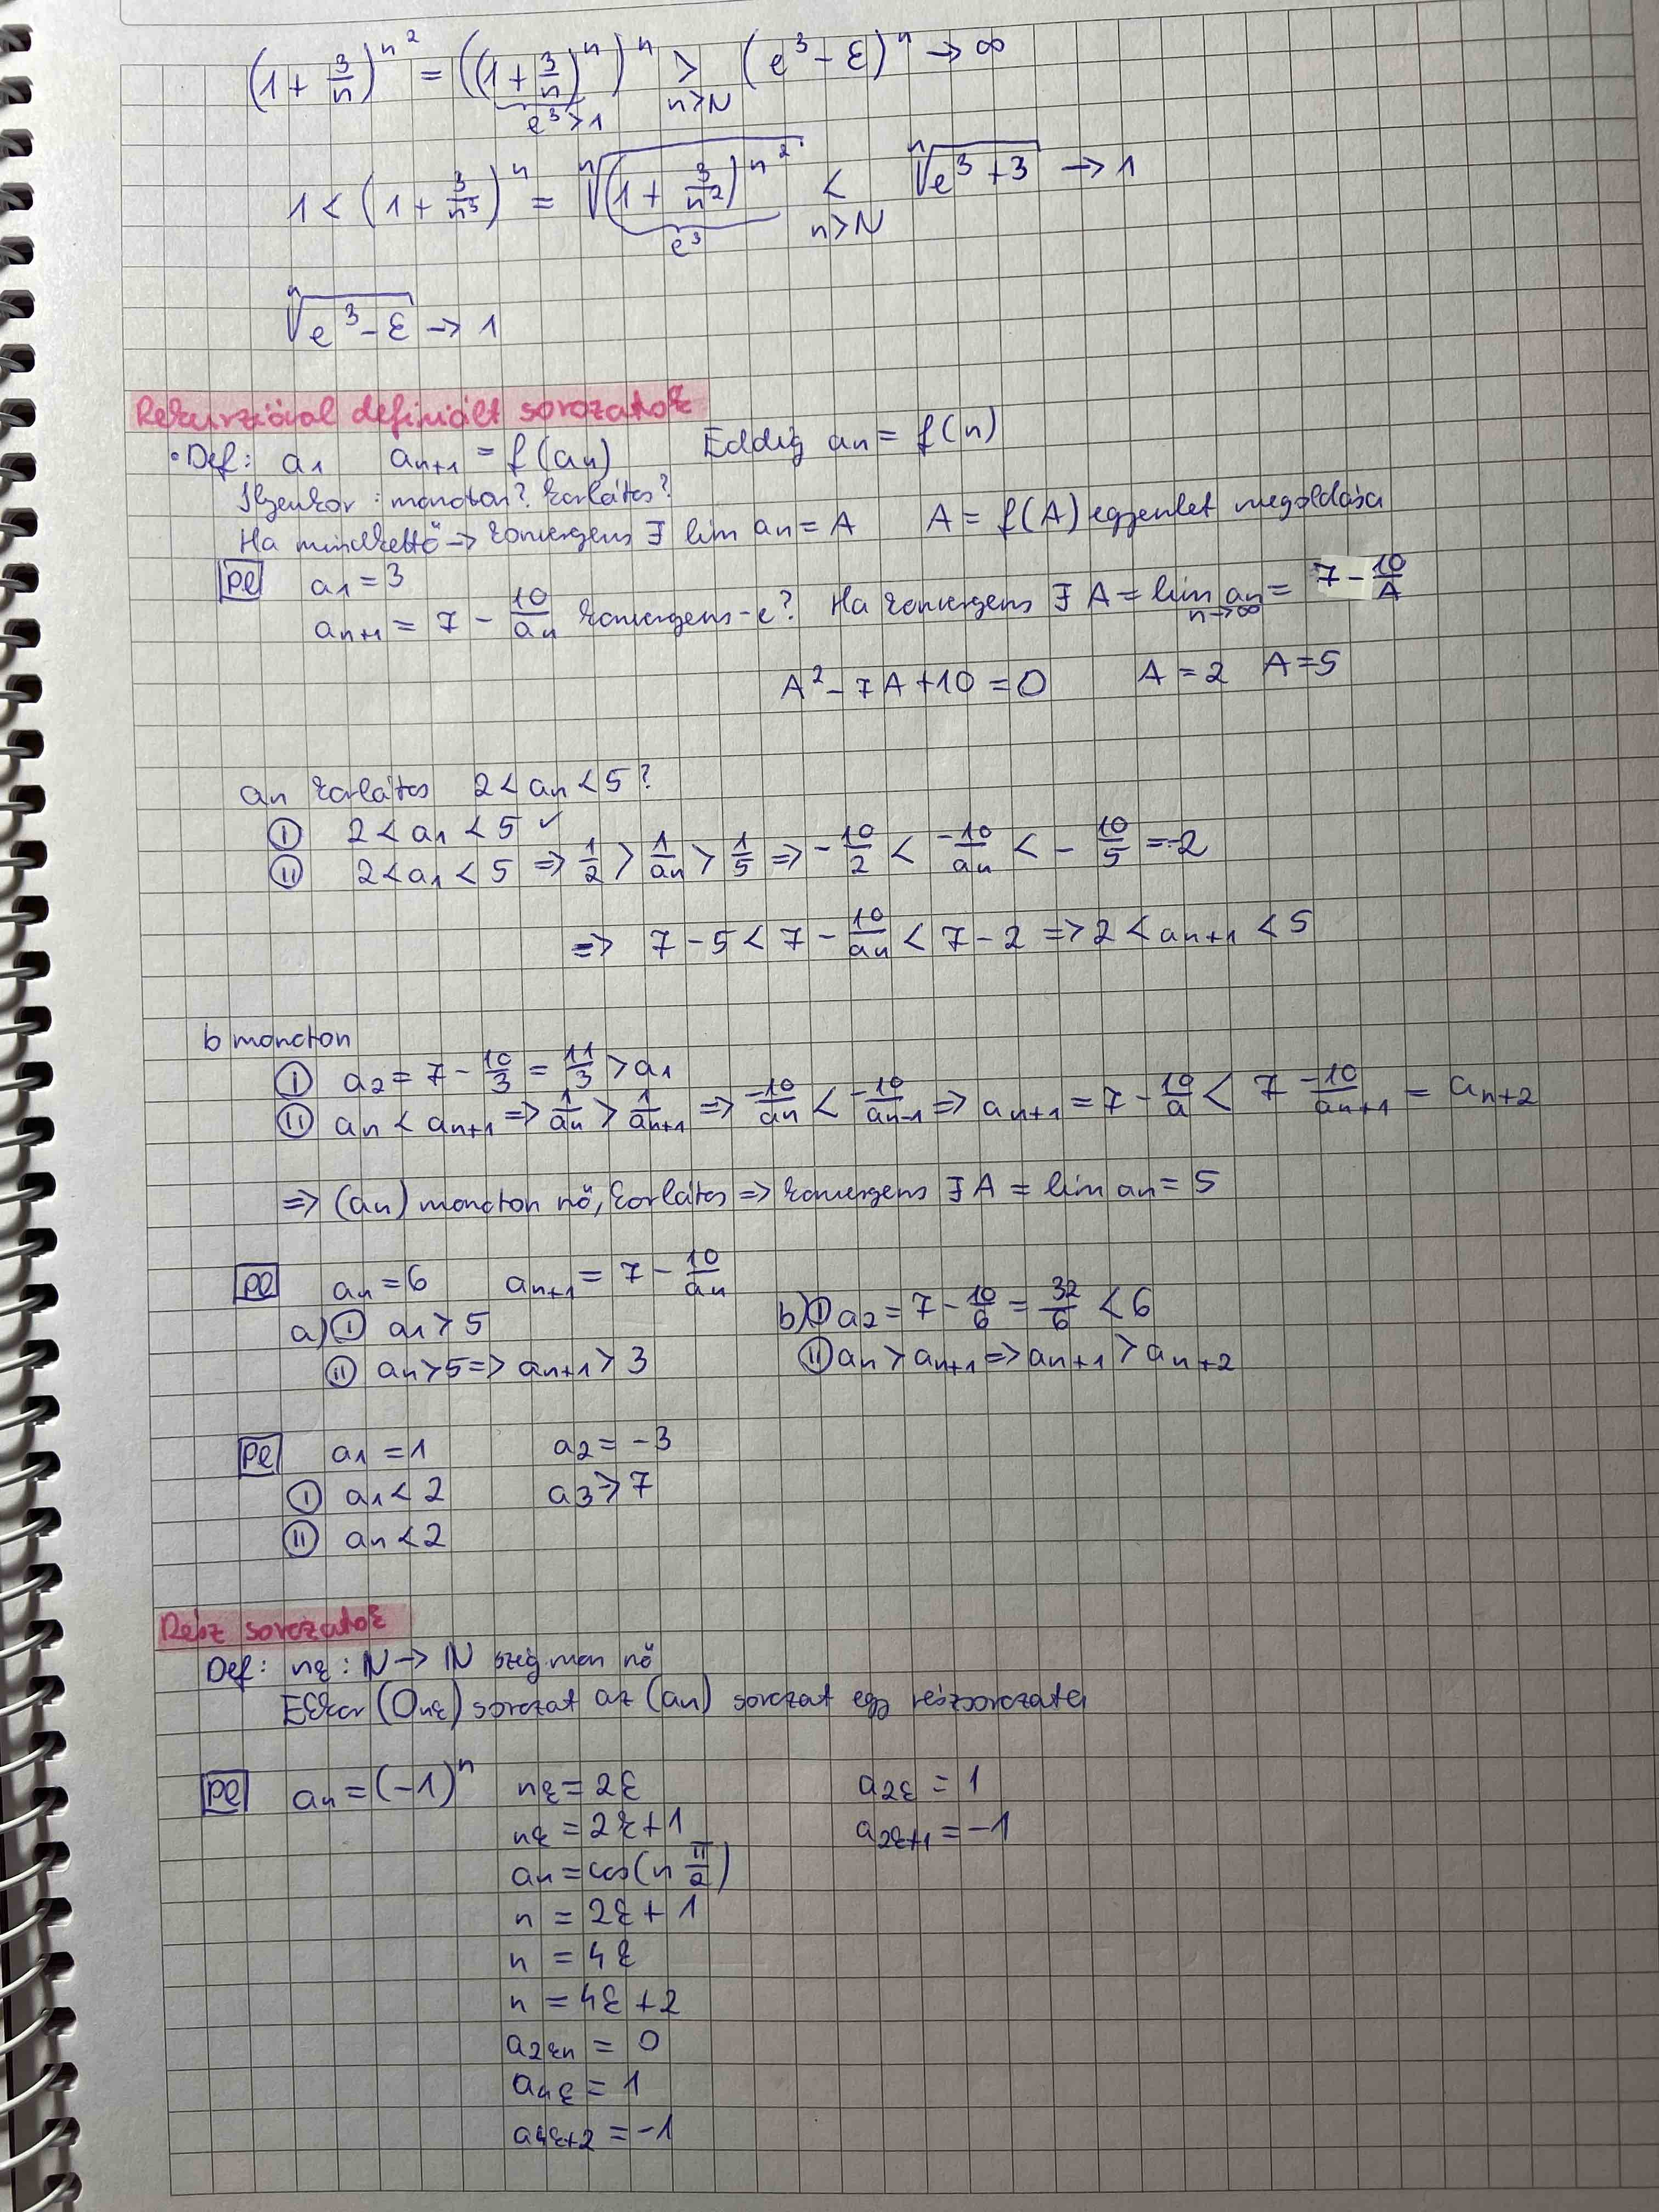 (1 + 3/n)^n² = ((1 + 3/n)^n)^n > (e³ - ε)^n → ∞
e³>1 n>N
1 < (1 + 3/n³)^n = ⁿ√(1 + 3/n²)^n² < ⁿ√e³+3 → 1
e³ n>N
ⁿ√e³-ε → 1
Rekurzióval definiált sorozatok
• Def: a₁ aₙ₊₁ = f(aₙ) Eddig aₙ = f(n)
Ilyenkor: monoton? korlátos?
Ha mindkettő → konvergens ∃ lim aₙ = A A = f(A) egyenlet megoldása
Pl a₁ = 3
aₙ₊₁ = 7 - 10/aₙ konvergens-e? Ha konvergens ∃ A = lim aₙ = 7 - 10/A
n→∞
A² - 7A + 10 = 0 A = 2 A = 5
aₙ korlátos 2 < aₙ < 5?
Ⓘ 2 < a₁ < 5 ✓
Ⓘⓘ 2 < a₁ < 5 ⇒ 1/2 > 1/aₙ > 1/5 ⇒ -10/2 < -10/aₙ < -10/5 = -2
⇒ 7 - 5 < 7 - 10/aₙ < 7 - 2 ⇒ 2 < aₙ₊₁ < 5
b monoton
Ⓘ a₂ = 7 - 10/3 = 11/3 > a₁
Ⓘⓘ aₙ < aₙ₊₁ ⇒ 1/aₙ > 1/aₙ₊₁ ⇒ -10/aₙ < -10/aₙ₋₁ ⇒ aₙ₊₁ = 7 - 10/a < 7 -10/aₙ₊₁ = aₙ₊₂
⇒ (aₙ) monoton nő, korlátos ⇒ konvergens ∃ A = lim aₙ = 5
Pl aₙ = 6 aₙ₊₁ = 7 - 10/aₙ
a) Ⓘ a₁ > 5 b) Ⓘ a₂ = 7 - 10/6 = 32/6 < 6
Ⓘⓘ aₙ > 5 ⇒ aₙ₊₁ > 3 Ⓘⓘ aₙ > aₙ₊₁ ⇒ aₙ₊₁ > aₙ₊₂
Pl a₁ = 1 a₂ = -3
Ⓘ a₁ < 2 a₃ > 7
Ⓘⓘ aₙ < 2
Rész sorozatok
Def: nₖ: ℕ → ℕ szig mon nő
Ekkor (Oₙₖ) sorozat az (aₙ) sorozat egy részsorozata
Pl aₙ = (-1)ⁿ nₖ = 2k a₂ₖ = 1
nₖ = 2k+1 a₂ₖ₊₁ = -1
aₙ = cos(n π/2)
n = 2k + 1
n = 4k
n = 4k + 2
a₂ₖₙ = 0
a₄ₖ = 1
a₄ₖ₊₂ = -1